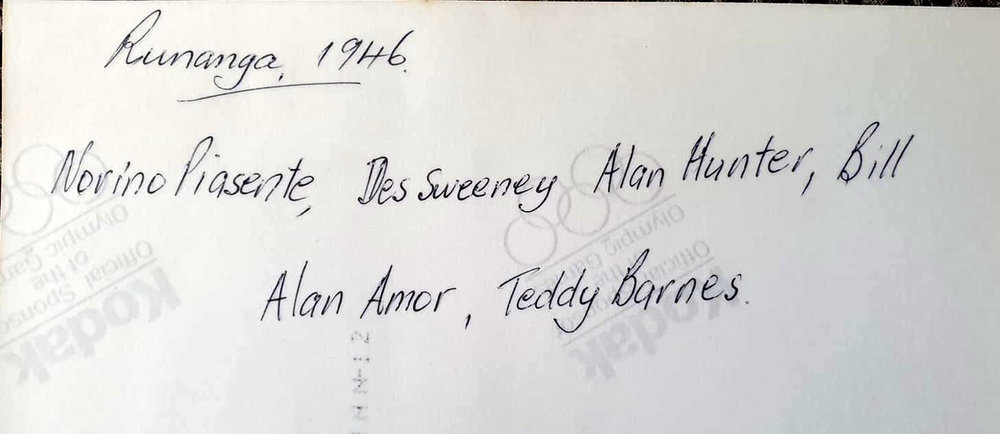 Runanga, 1946.
Norino Piasente, Des Sweeney Alan Hunter, Bill
Alan Amor, Teddy Barnes.
Kodak
Official Sponsor
of the
Olympic Games
Kodak
Official
of the
Olympic